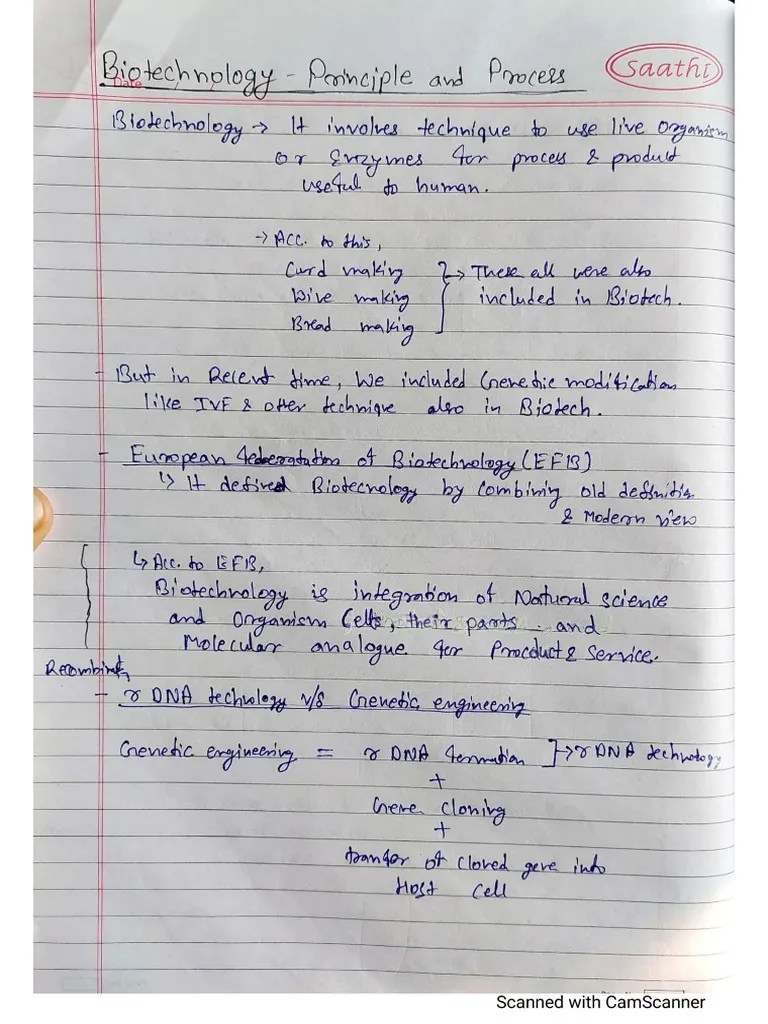 Biotechnology - Principle and Process
Saathi
Date
Biotechnology → It involves technique to use live organism
or Enzymes for process & product
useful to human.
→ Acc. to this,
Curd making
Wine making
Bread making
→ These all were also
included in Biotech.
- But in Recent time, We included Genetic modification
like IVF & other technique also in Biotech.
- European of Biotechnology (EFB)
↳ It defined Biotecnology by Combining old definitin
& Modern view
↳ Acc. to EFB,
Biotechnology is integration of Natural science
and Organism Cells, their parts and
Molecular analogue for Product & Service.
- r DNA technology v/s Genetic engineering
Genetic engineering = r DNA formation ]→ r DNA technology
+
Gene Cloning
+
tranfer of Cloned gene into
Host Cell
Scanned with CamScanner